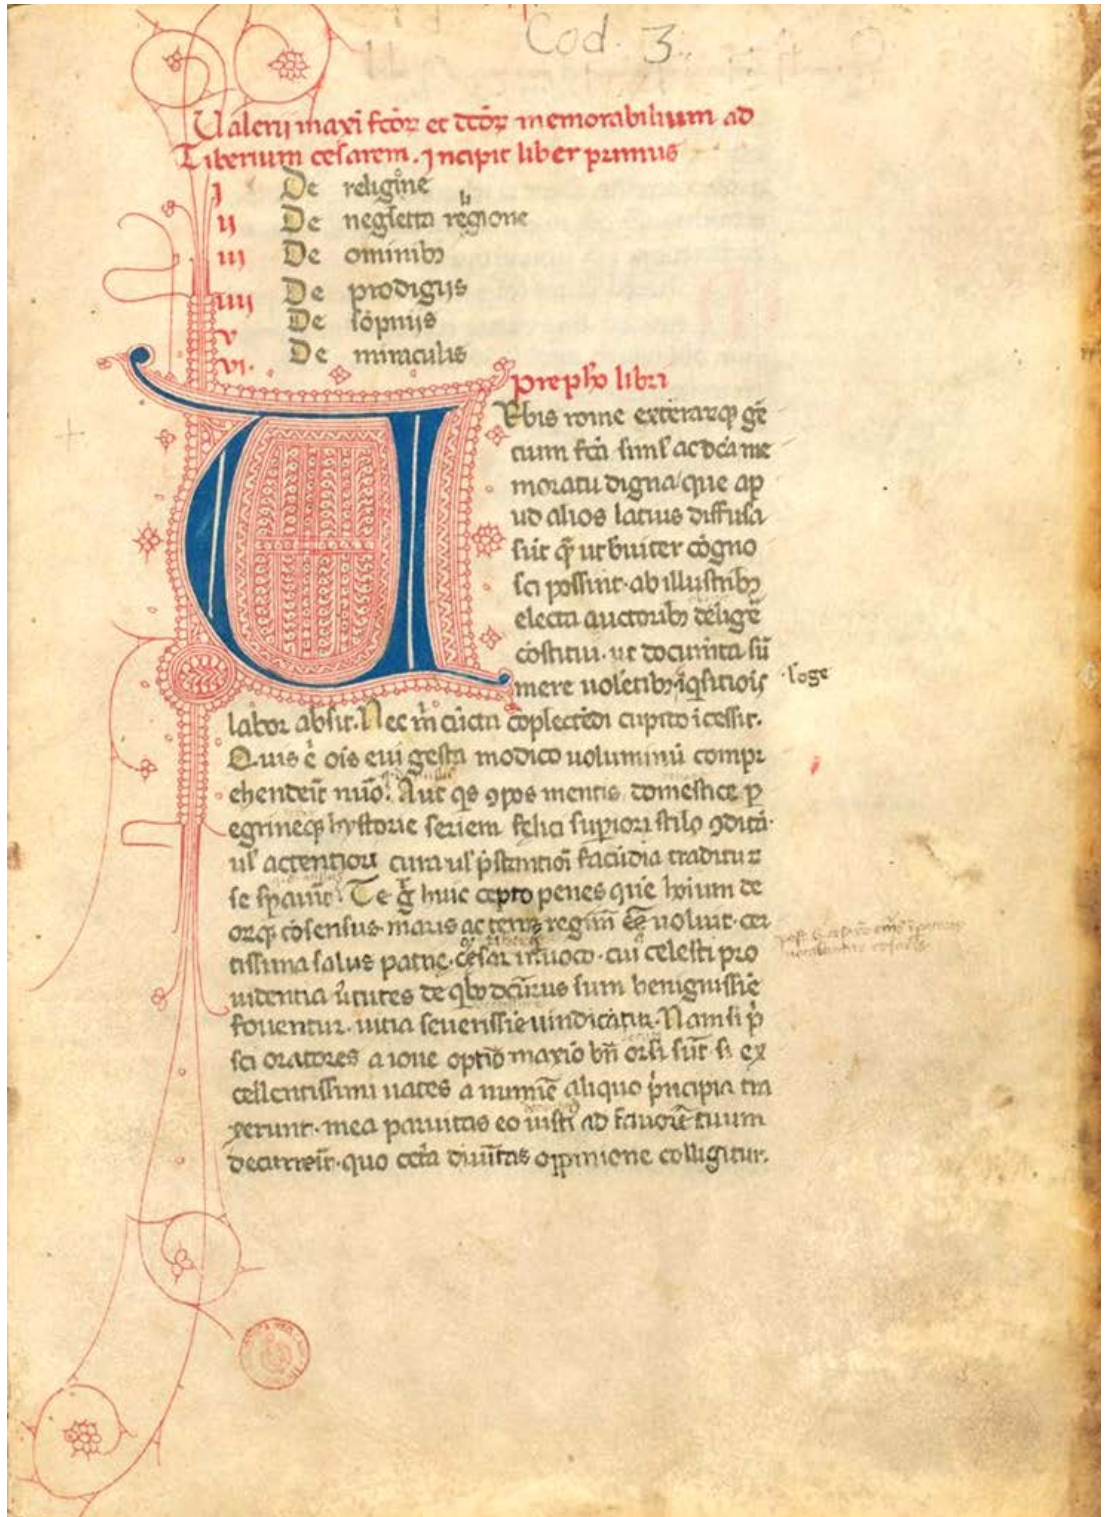 Cod. 3.
Valerij maxi fcōꝝ et dcōꝝ memorabilium ad
Tiberium cesarem. Jncipit liber primus
j De religiōne
ij De neglecta regione
iij De ominibꝫ
iiij De prodigijs
v De sōpnijs
vi. De miraculis
prephō libri
Urbis rome exterarꝙ gē
tium fc̄a siml' ac dc̄a me
moratu digna que ap
ud alios latius diffusa
sūt qm̄ ut breuiter cōgno
sci possint ab illustribꝫ
electa auctoribꝫ delige
cōstitui. ut documīta sū
mere uolētibꝫ īqsitiois
lōge
labor absit. Nec m̄ cūcta cōplectēdi cupito īcessit.
Quis .n. oīs eui gesta modico uoluminū compr
ehenderit nūo? Aut qs ꝯpos mentis domestice p
egrineꝙ hystorie seriem felici supiori stilo ꝯditā
ul' actentiori cura ul' p̄stantiori facūdia traditur
se spauīt? Te g̊ huic cepto penes quē hoīum de
orꝙ cōsensus maris ac terre regimē eē uoluit cer
tissima salus patrie cesar inuoco. cui celesti pro
uidentia ūtutes de qbꝫ dictūrus sum benignissīe
fouentur. uitia seuerissīe uindicātur. Nam si p̄
sci oratores a ioue optīo maxīo bn̄ orsi sūt. si ex
cellentissimi uates a numīe aliquo p̄ncipia tra
xerunt. mea paruitas eo iusti ad fauorē tuum
decurrerit. quo cetā diuītas oppinione colligitur.